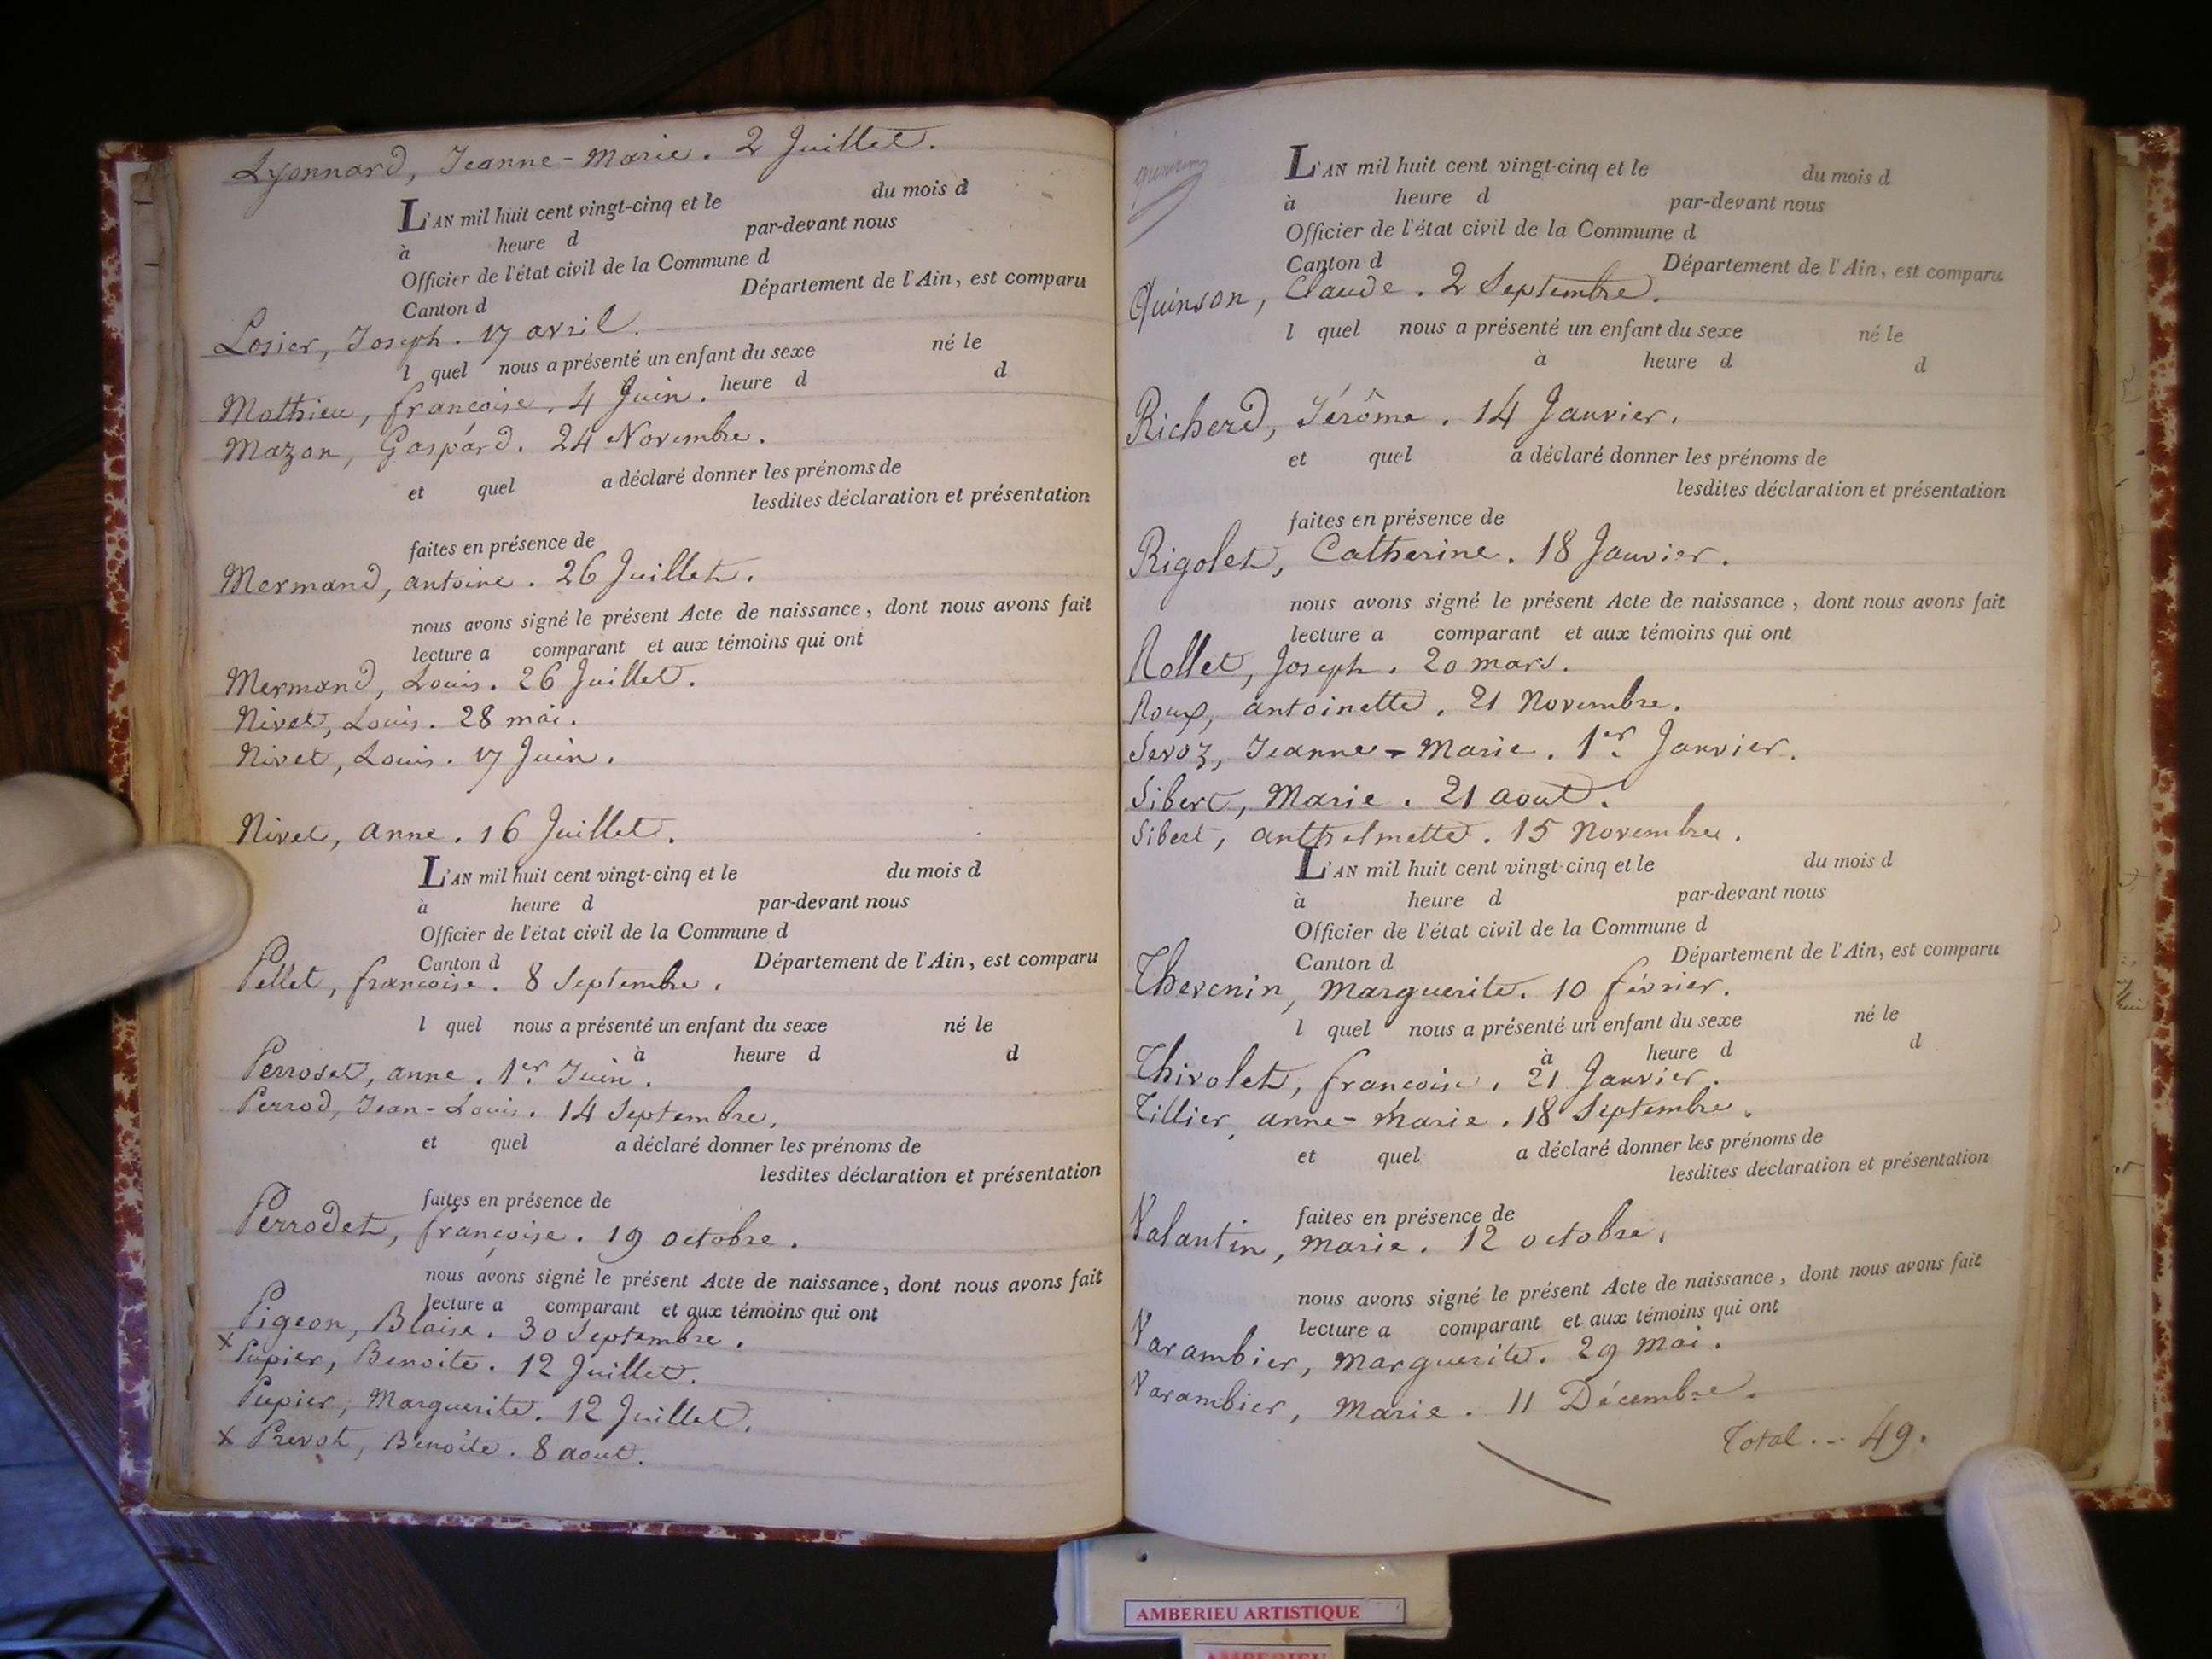 Lyonnard, Jeanne-Marie. 2 Juillet.
L'AN mil huit cent vingt-cinq et le du mois d
à heure d par-devant nous
Officier de l'état civil de la Commune d
Canton d Département de l'Ain, est comparu
Losier, Joseph. 17 avril.
l quel nous a présenté un enfant du sexe né le
heure d d
Mathieu, françoise. 4 Juin.
Mazon, Gaspard. 24 Novembre.
et quel a déclaré donner les prénoms de
lesdites déclaration et présentation
faites en présence de
Mermand, antoine. 26 Juillet.
nous avons signé le présent Acte de naissance, dont nous avons fait
lecture a comparant et aux témoins qui ont
Mermand, Louis. 26 Juillet.
Nivet, Louis. 28 mai.
Nivet, Louis. 17 Juin.
Nivet, anne. 16 Juillet.
L'AN mil huit cent vingt-cinq et le du mois d
à heure d par-devant nous
Officier de l'état civil de la Commune d
Canton d Département de l'Ain, est comparu
Pellet, françoise. 8 Septembre.
l quel nous a présenté un enfant du sexe né le
à heure d d
Perroset, anne. 1er Juin.
Perrod, Jean-Louis. 14 Septembre.
et quel a déclaré donner les prénoms de
lesdites déclaration et présentation
faites en présence de
Perrodet, françoise. 19 octobre.
nous avons signé le présent Acte de naissance, dont nous avons fait
lecture a comparant et aux témoins qui ont
Pigeon, Blaise. 30 Septembre.
x Pupier, Benoite. 12 Juillet.
Pupier, Marguerite. 12 Juillet.
x Prevot, Benoîte. 8 aout.
L'AN mil huit cent vingt-cinq et le du mois d
à heure d par-devant nous
Officier de l'état civil de la Commune d
Canton d Département de l'Ain, est comparu
Quinson, Claude. 2 Septembre.
l quel nous a présenté un enfant du sexe né le
à heure d d
Richerd, Jérôme. 14 Janvier.
et quel a déclaré donner les prénoms de
lesdites déclaration et présentation
faites en présence de
Rigolet, Catherine. 18 Janvier.
nous avons signé le présent Acte de naissance, dont nous avons fait
lecture a comparant et aux témoins qui ont
Rollet, Joseph. 20 mars.
Roux, antoinette. 21 Novembre.
Servoz, Jeanne-Marie. 1er Janvier.
Sibert, Marie. 21 aout.
Sibert, anthelmette. 15 Novembre.
L'AN mil huit cent vingt-cinq et le du mois d
à heure d par-devant nous
Officier de l'état civil de la Commune d
Canton d Département de l'Ain, est comparu
Thevenin, Marguerite. 10 février.
l quel nous a présenté un enfant du sexe né le
à heure d d
Thivolet, françoise. 21 Janvier.
Tillier, anne-Marie. 18 Septembre.
et quel a déclaré donner les prénoms de
lesdites déclaration et présentation
faites en présence de
Valantin, Marie. 12 octobre.
nous avons signé le présent Acte de naissance, dont nous avons fait
lecture a comparant et aux témoins qui ont
Varambier, Marguerite. 29 Mai.
Varambier, Marie. 11 Décembre.
Total... 49.
AMBERIEU ARTISTIQUE
AMBERIEU